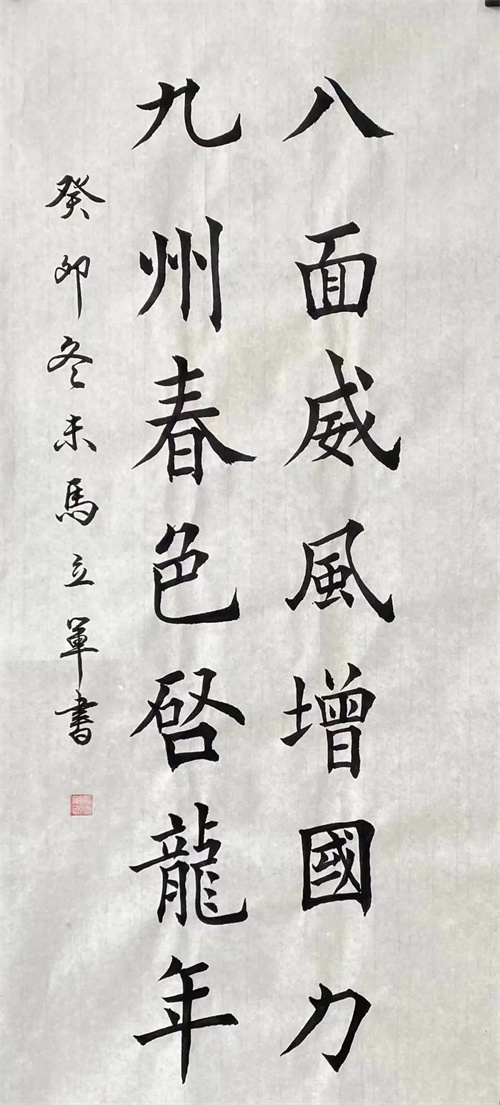 八面威風增國力
九州春色啓龍年
癸卯冬末馬立軍書